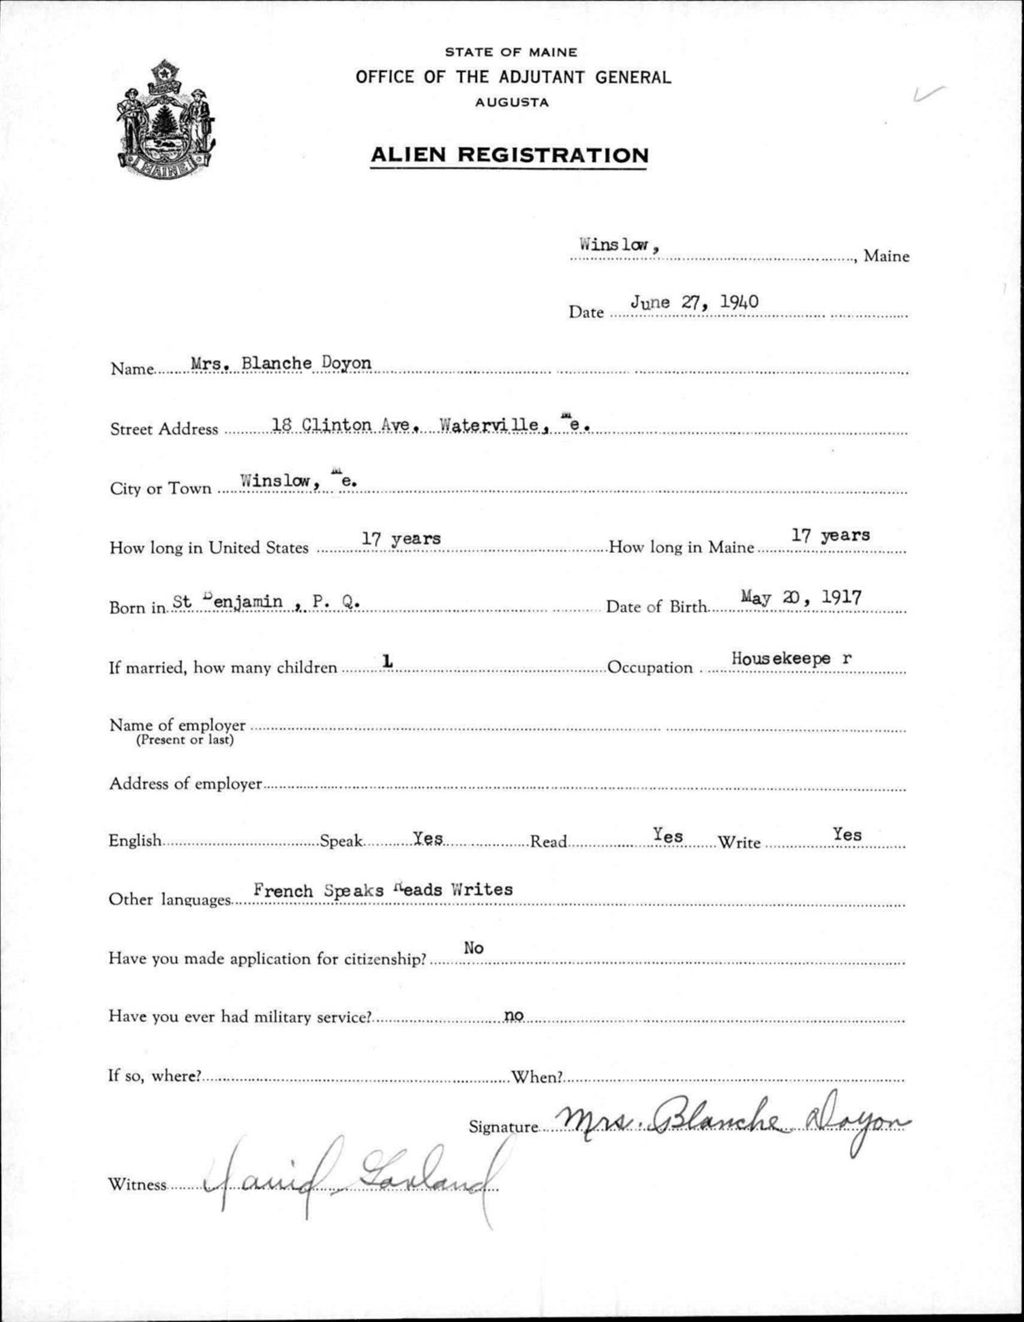 STATE OF MAINE
OFFICE OF THE ADJUTANT GENERAL
AUGUSTA
ALIEN REGISTRATION
MAINE
Winslow, , Maine
Date June 27, 1940
Name Mrs. Blanche Doyon
Street Address 18 Clinton Ave. Waterville, Me.
City or Town Winslow, Me.
How long in United States 17 years How long in Maine 17 years
Born in St Benjamin , P. Q. Date of Birth May 20, 1917
If married, how many children 1 Occupation Housekeepe r
Name of employer
(Present or last)
Address of employer
English Speak Yes Read Yes Write Yes
Other languages French Speaks Reads Writes
Have you made application for citizenship? No
Have you ever had military service? no
If so, where? When?
Signature Mrs. Blanche Doyon
Witness David Garland